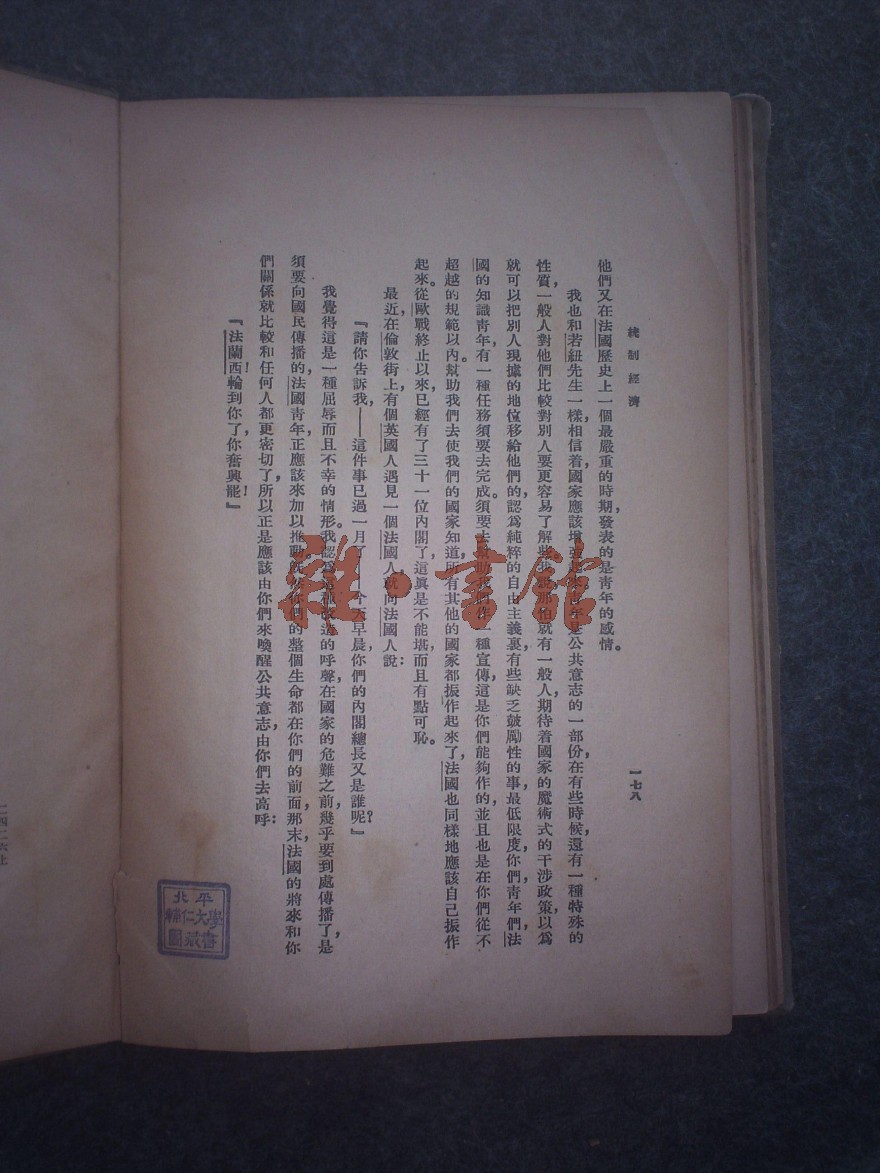 統制經濟
一七八
他們又在法國歷史上一個最嚴重的時期，發表的是青年的感情。
我也和若紐先生一樣，相信着國家應該增強起來，青年是公共意志的一部份，在有些時候，還有一種特殊的
性質，一般人對他們比較對別人要更容易了解些，我說那怕就有一般人，期待着國家的魔術式的干涉政策，以爲
就可以把別人現據的地位移給他們的，認爲純粹的自由主義裏，有些缺乏鼓勵性的事，最低限度，你們，青年們，法
國的知識青年，有一種任務須要去完成。須要去幫助我們作一種宣傳，這是你們能夠作的，並且也是在你們從不
超越的規範以內。幫助我們去使我們的國家知道，所有其他的國家都振作起來了，法國也同樣地應該自己振作
起來。從歐戰終止以來，已經有了三十一位內閣了，這眞是不能堪而且有點可恥。
最近，在倫敦街上，有個英國人遇見一個法國人，就向法國人說：
『請你告訴我，——這件事已過一月了——今天早晨，你們的內閣總長又是誰呢？』
我覺得這是一種屈辱而且不幸的情形。我認爲這種改造的呼聲，在國家的危難之前，幾乎要到處傳播了，是
須要向國民傳播的，法國青年，正應該來加以推動，既然你們的整個生命都在你們的前面，那末，法國的將來和你
們關係就比較和任何人都更密切了，所以正是應該由你們來喚醒公共意志，由你們去高呼：
『法蘭西！輪到你了，你奮興罷！』
北平
輔仁大學
圖書館藏書
二四二六上
雜·書館